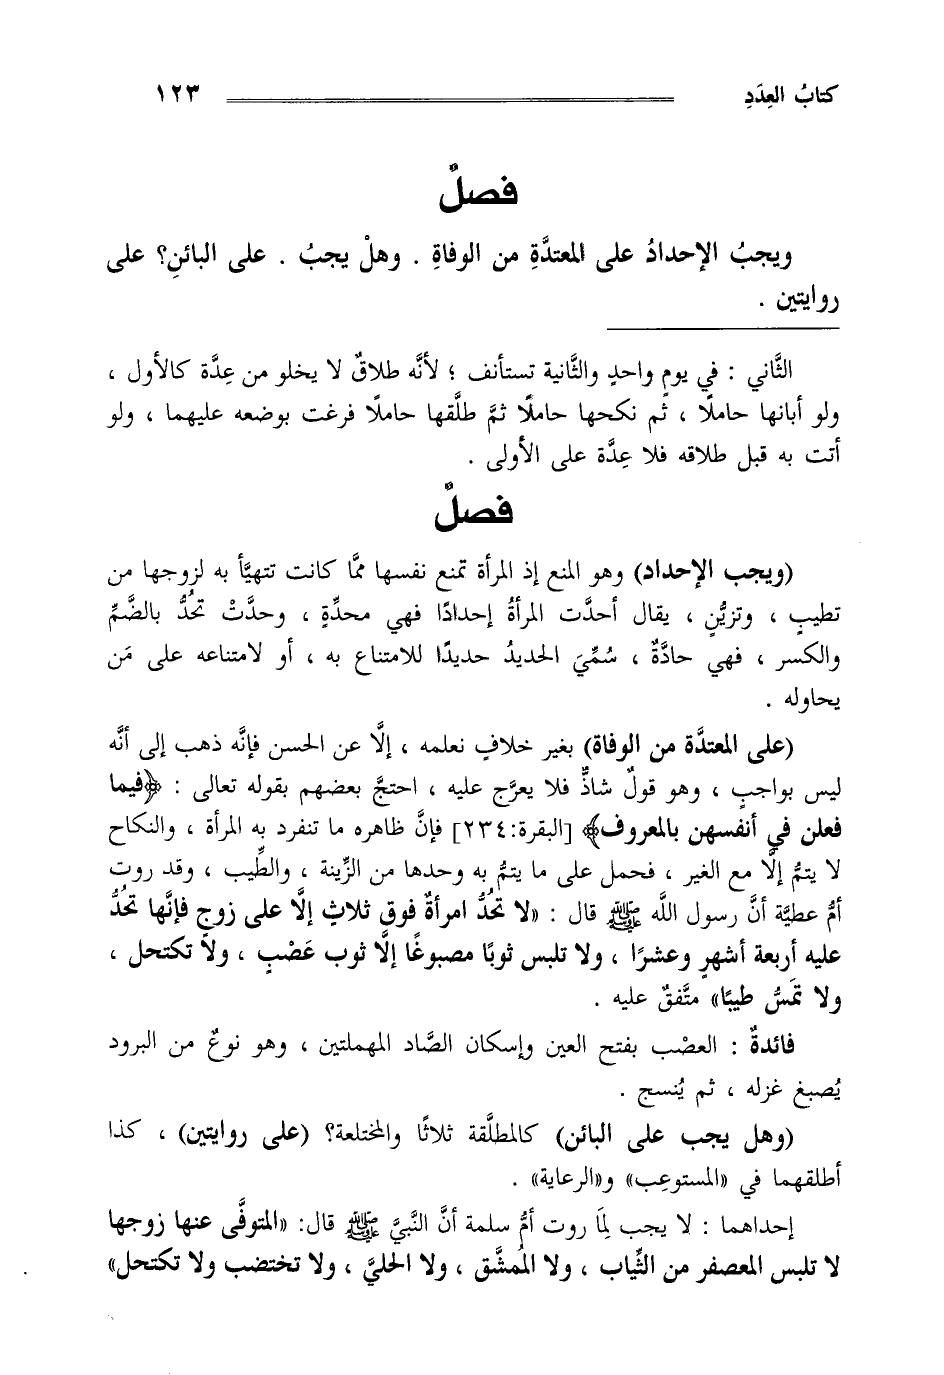 كتابُ العِدَدِ ١٢٣
فصلٌ
ويجبُ الإحدادُ على المعتدَّةِ من الوفاةِ . وهلْ يجبُ . على البائنِ؟ على
روايتين .
الثَّاني : في يومٍ واحدٍ والثَّانية تستأنف ؛ لأنَّه طلاقٌ لا يخلو من عِدَّة كالأول ،
ولو أبانها حاملًا ، ثم نكحها حاملًا ثمَّ طلَّقها حاملًا فرغت بوضعه عليهما ، ولو
أتت به قبل طلاقه فلا عِدَّة على الأولى .
فصلٌ
(ويجب الإحداد) وهو المنع إذ المرأة تمنع نفسها ممَّا كانت تتهيَّأ به لزوجها من
تطيبٍ ، وتزيُّنٍ ، يقال أحدَّت المرأةُ إحدادًا فهي محدِّةٍ ، وحدَّتْ تحُدُّ بالضَّمِّ
والكسر ، فهي حادَّةٌ ، سُمِّيَ الحديدُ حديدًا للامتناع به ، أو لامتناعه على مَن
يحاوله .
(على المعتدَّة من الوفاة) بغير خلافٍ نعلمه ، إلَّا عن الحسن فإنَّه ذهب إلى أنَّه
ليس بواجبٍ ، وهو قولٌ شاذٌّ فلا يعرَّج عليه ، احتجَّ بعضهم بقوله تعالى : ﴿فيما
فعلن في أنفسهن بالمعروف﴾ [البقرة:٢٣٤] فإنَّ ظاهره ما تنفرد به المرأة ، والنكاح
لا يتمُّ إلَّا مع الغير ، فحمل على ما يتمُّ به وحدها من الزِّينة ، والطِّيب ، وقد روت
أمُّ عطيَّة أنَّ رسول الله ﷺ قال : «لا تحُدُّ امرأةٌ فوق ثلاثٍ إلَّا على زوجٍ فإنَّها تحُدُّ
عليه أربعة أشهرٍ وعشرًا ، ولا تلبس ثوبًا مصبوغًا إلَّا ثوب عَصْبٍ ، ولا تكتحل ،
ولا تمَسُّ طيبًا» متَّفقٌ عليه .
فائدةٌ : العصْب بفتح العين وإسكان الصَّاد المهملتين ، وهو نوعٌ من البرود
يُصبغ غزله ، ثم يُنسج .
(وهل يجب على البائن) كالمطلَّقة ثلاثًا والمختلعة؟ (على روايتين) ، كذا
أطلقهما في «المستوعِب» و«الرعاية» .
إحداهما : لا يجب لِمَا روت أمُّ سلمة أنَّ النبيَّ ﷺ قال: «المتوفَّى عنها زوجها
لا تلبس المعصفر من الثِّياب ، ولا المُمشَّق ، ولا الحليَّ ، ولا تختضب ولا تكتحل»